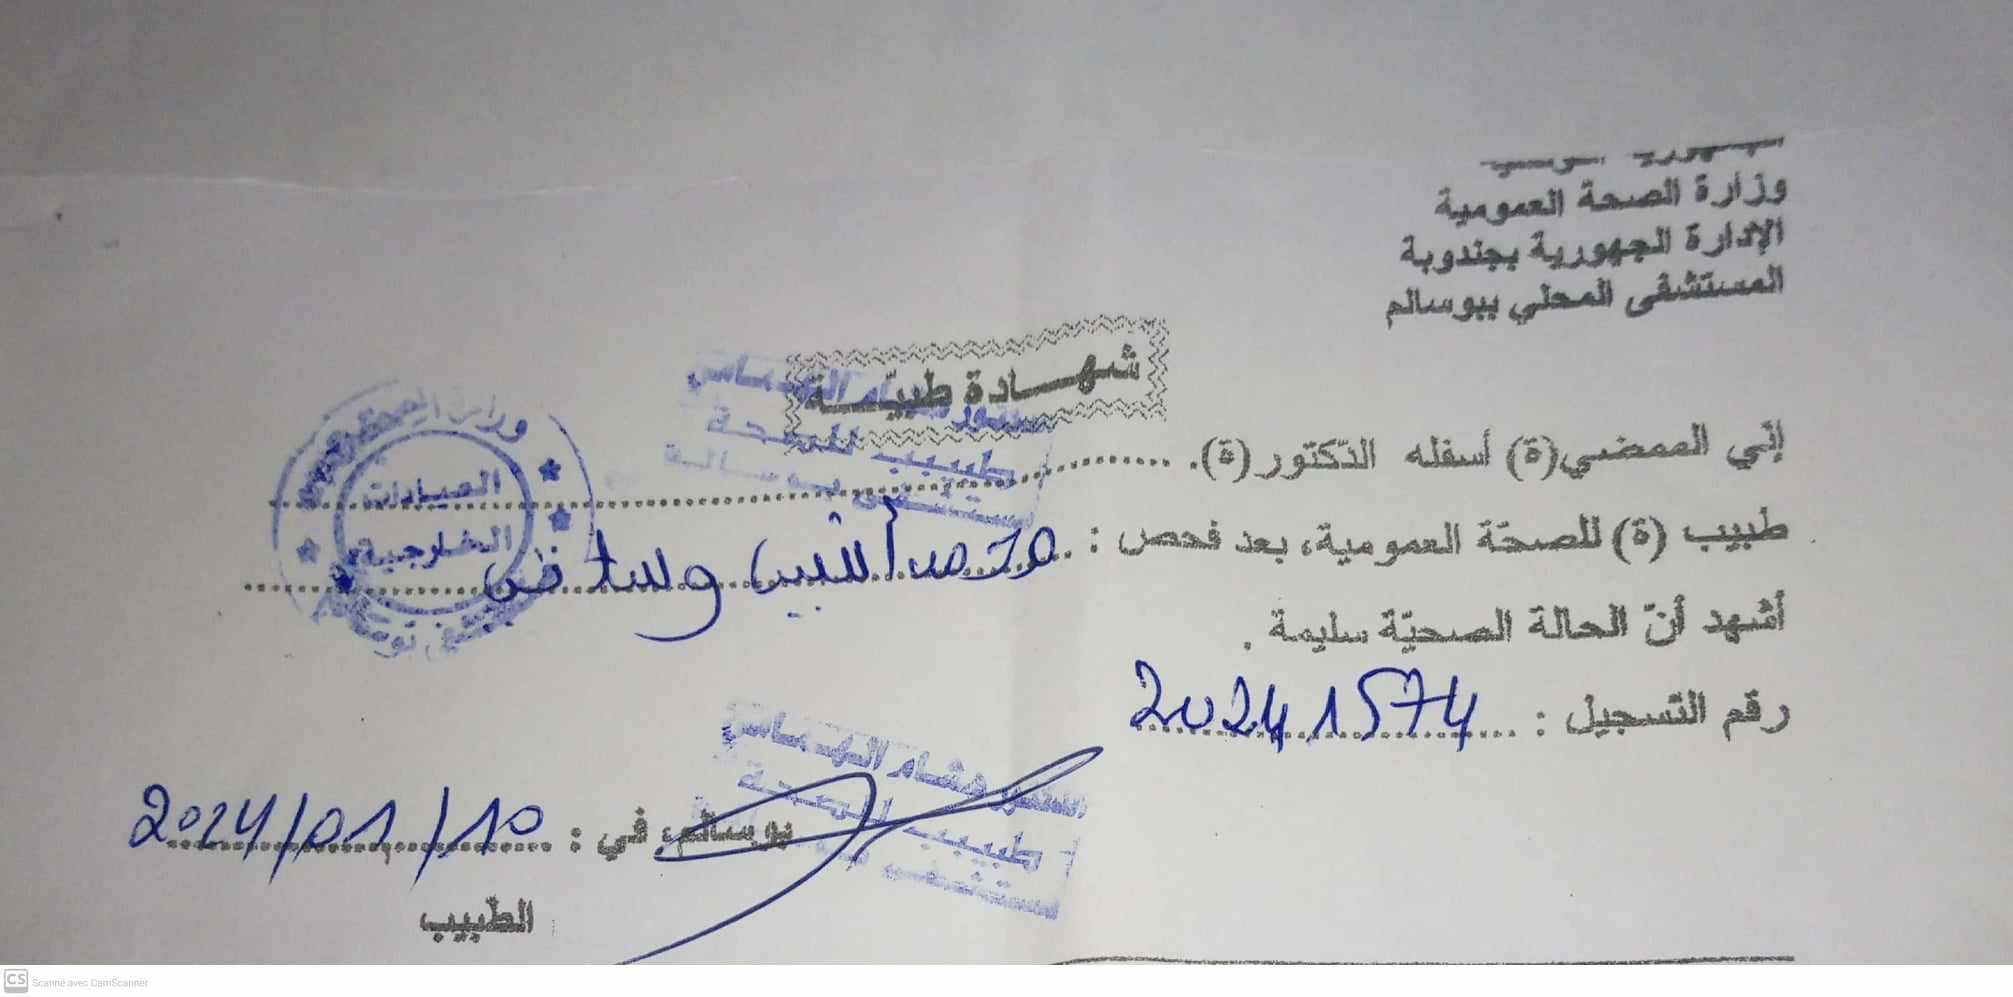 وزارة الصحة العمومية
الإدارة الجهورية بجندوبة
المستشفى المحلي ببوسالم
شهـــادة طبيّـــة
إنّي الممضي(ة) أسفله الدّكتور(ة).
طبيب (ة) للصحّة العمومية، بعد فحص :
أشهد أنّ الحالة الصحيّة سليمة .
رقم التّسجيل : 20241574
بوسالم، في : 2024/01/10
الطّبيب
العيادات
الخارجية
طبيب للصحة
CS Scanné avec CamScanner